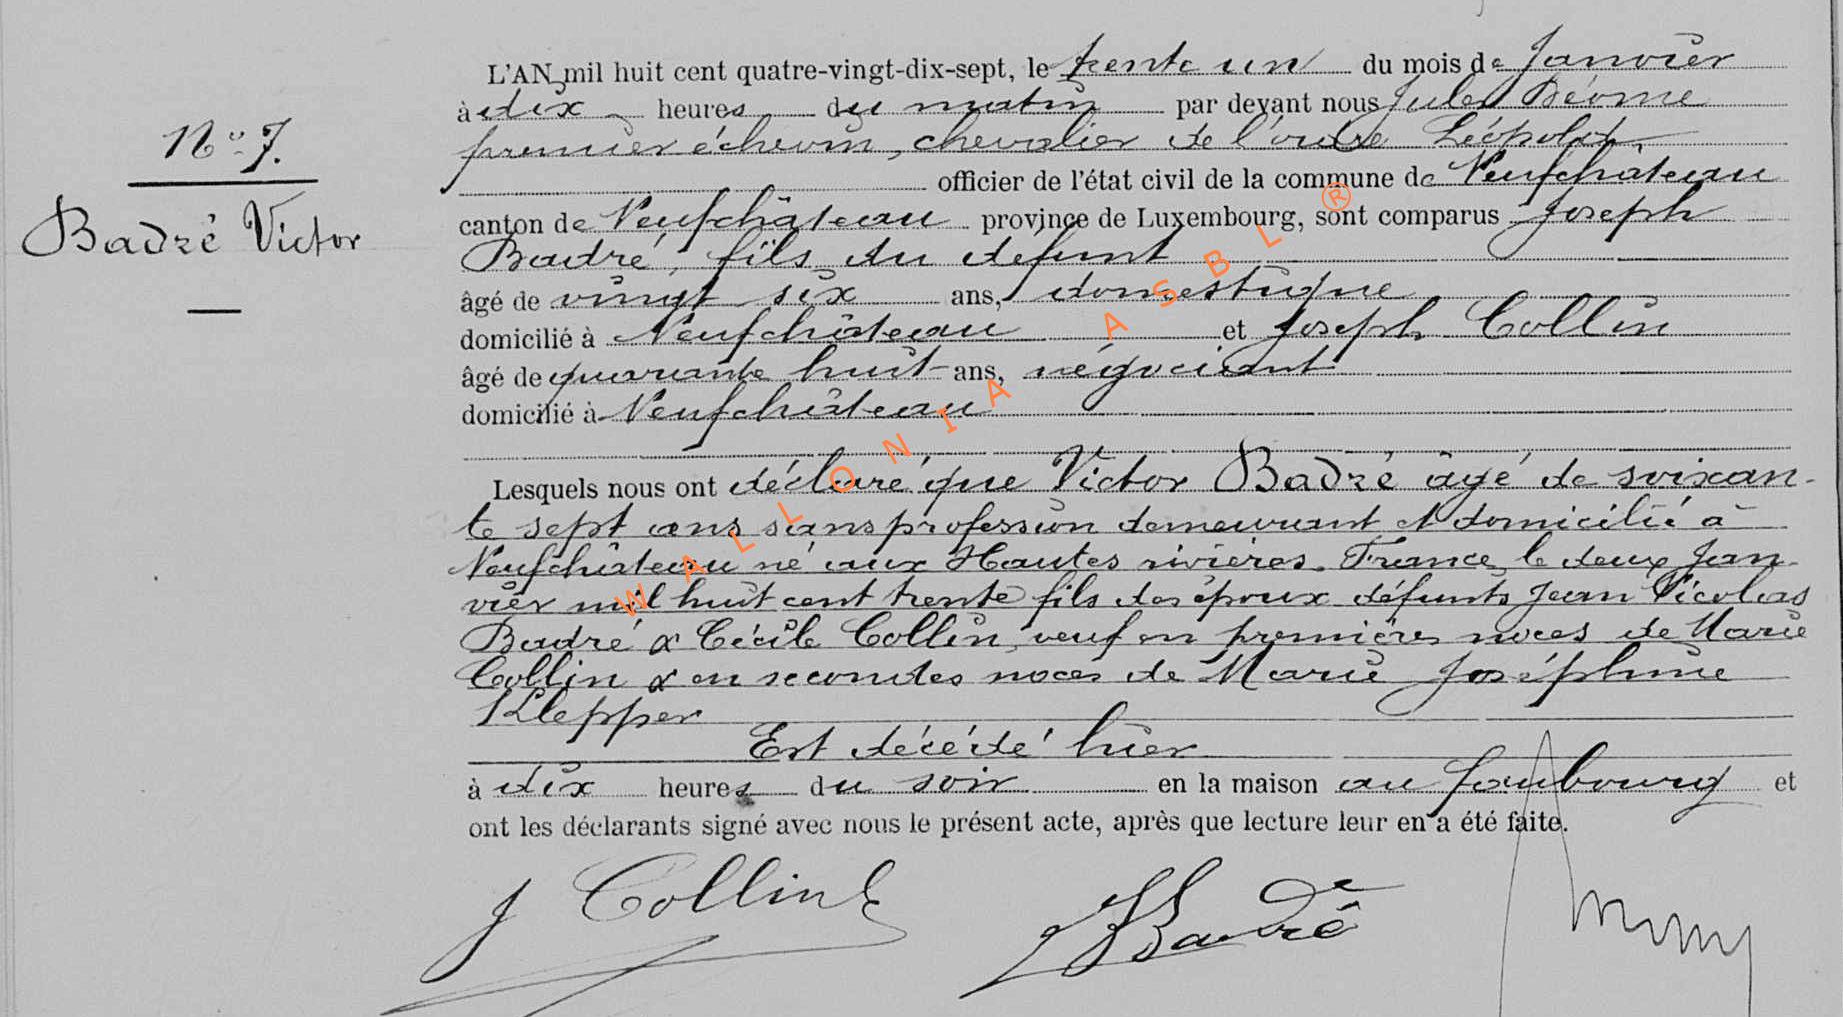 N° 7.
Badré Victor
L'AN mil huit cent quatre-vingt-dix-sept, le trente un du mois de Janvier
à dix heures du matin par devant nous Jules
premier échevin, chevalier de l'ordre Léopold
officier de l'état civil de la commune de Neufchâteau
canton de Neufchâteau province de Luxembourg, sont comparus Joseph
Badré, fils du défunt
âgé de vingt six ans, domestique
domicilié à Neufchâteau et Joseph Collin
âgé de quarante huit ans, négociant
domicilié à Neufchâteau
Lesquels nous ont déclaré que Victor Badré âgé de soixan-
te sept ans sans profession demeurant et domicilié à
Neufchâteau né aux Hautes rivières France, le deux Jan-
vier mil huit cent trente fils des époux défunts Jean Nicolas
Badré & Cécile Collin, veuf en premières noces de Marie
Collin & en secondes noces de Marie Joséphine
Klepper
Est décédé hier
à dix heures du soir en la maison au faubourg et
ont les déclarants signé avec nous le présent acte, après que lecture leur en a été faite.
J Collin
Badré
WALLONIA ASBL ®